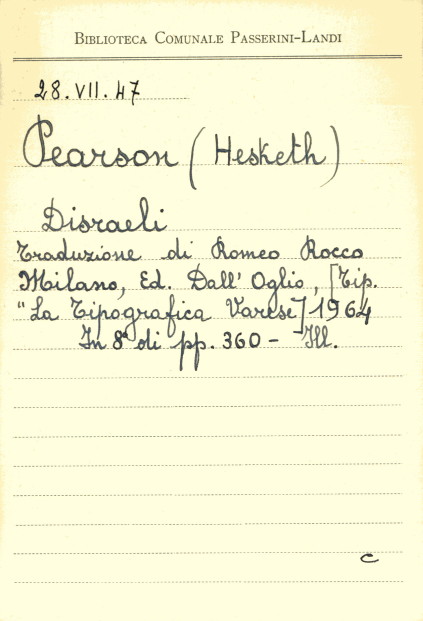 BIBLIOTECA COMUNALE PASSERINI-LANDI
28.VII.47
Pearson (Hesketh)
Disraeli
Traduzione di Romeo Rocco
Milano, Ed. Dall'Oglio, [Tip.
"La Tipografica Varese] 1964
In 8° di pp. 360 - Ill.
c